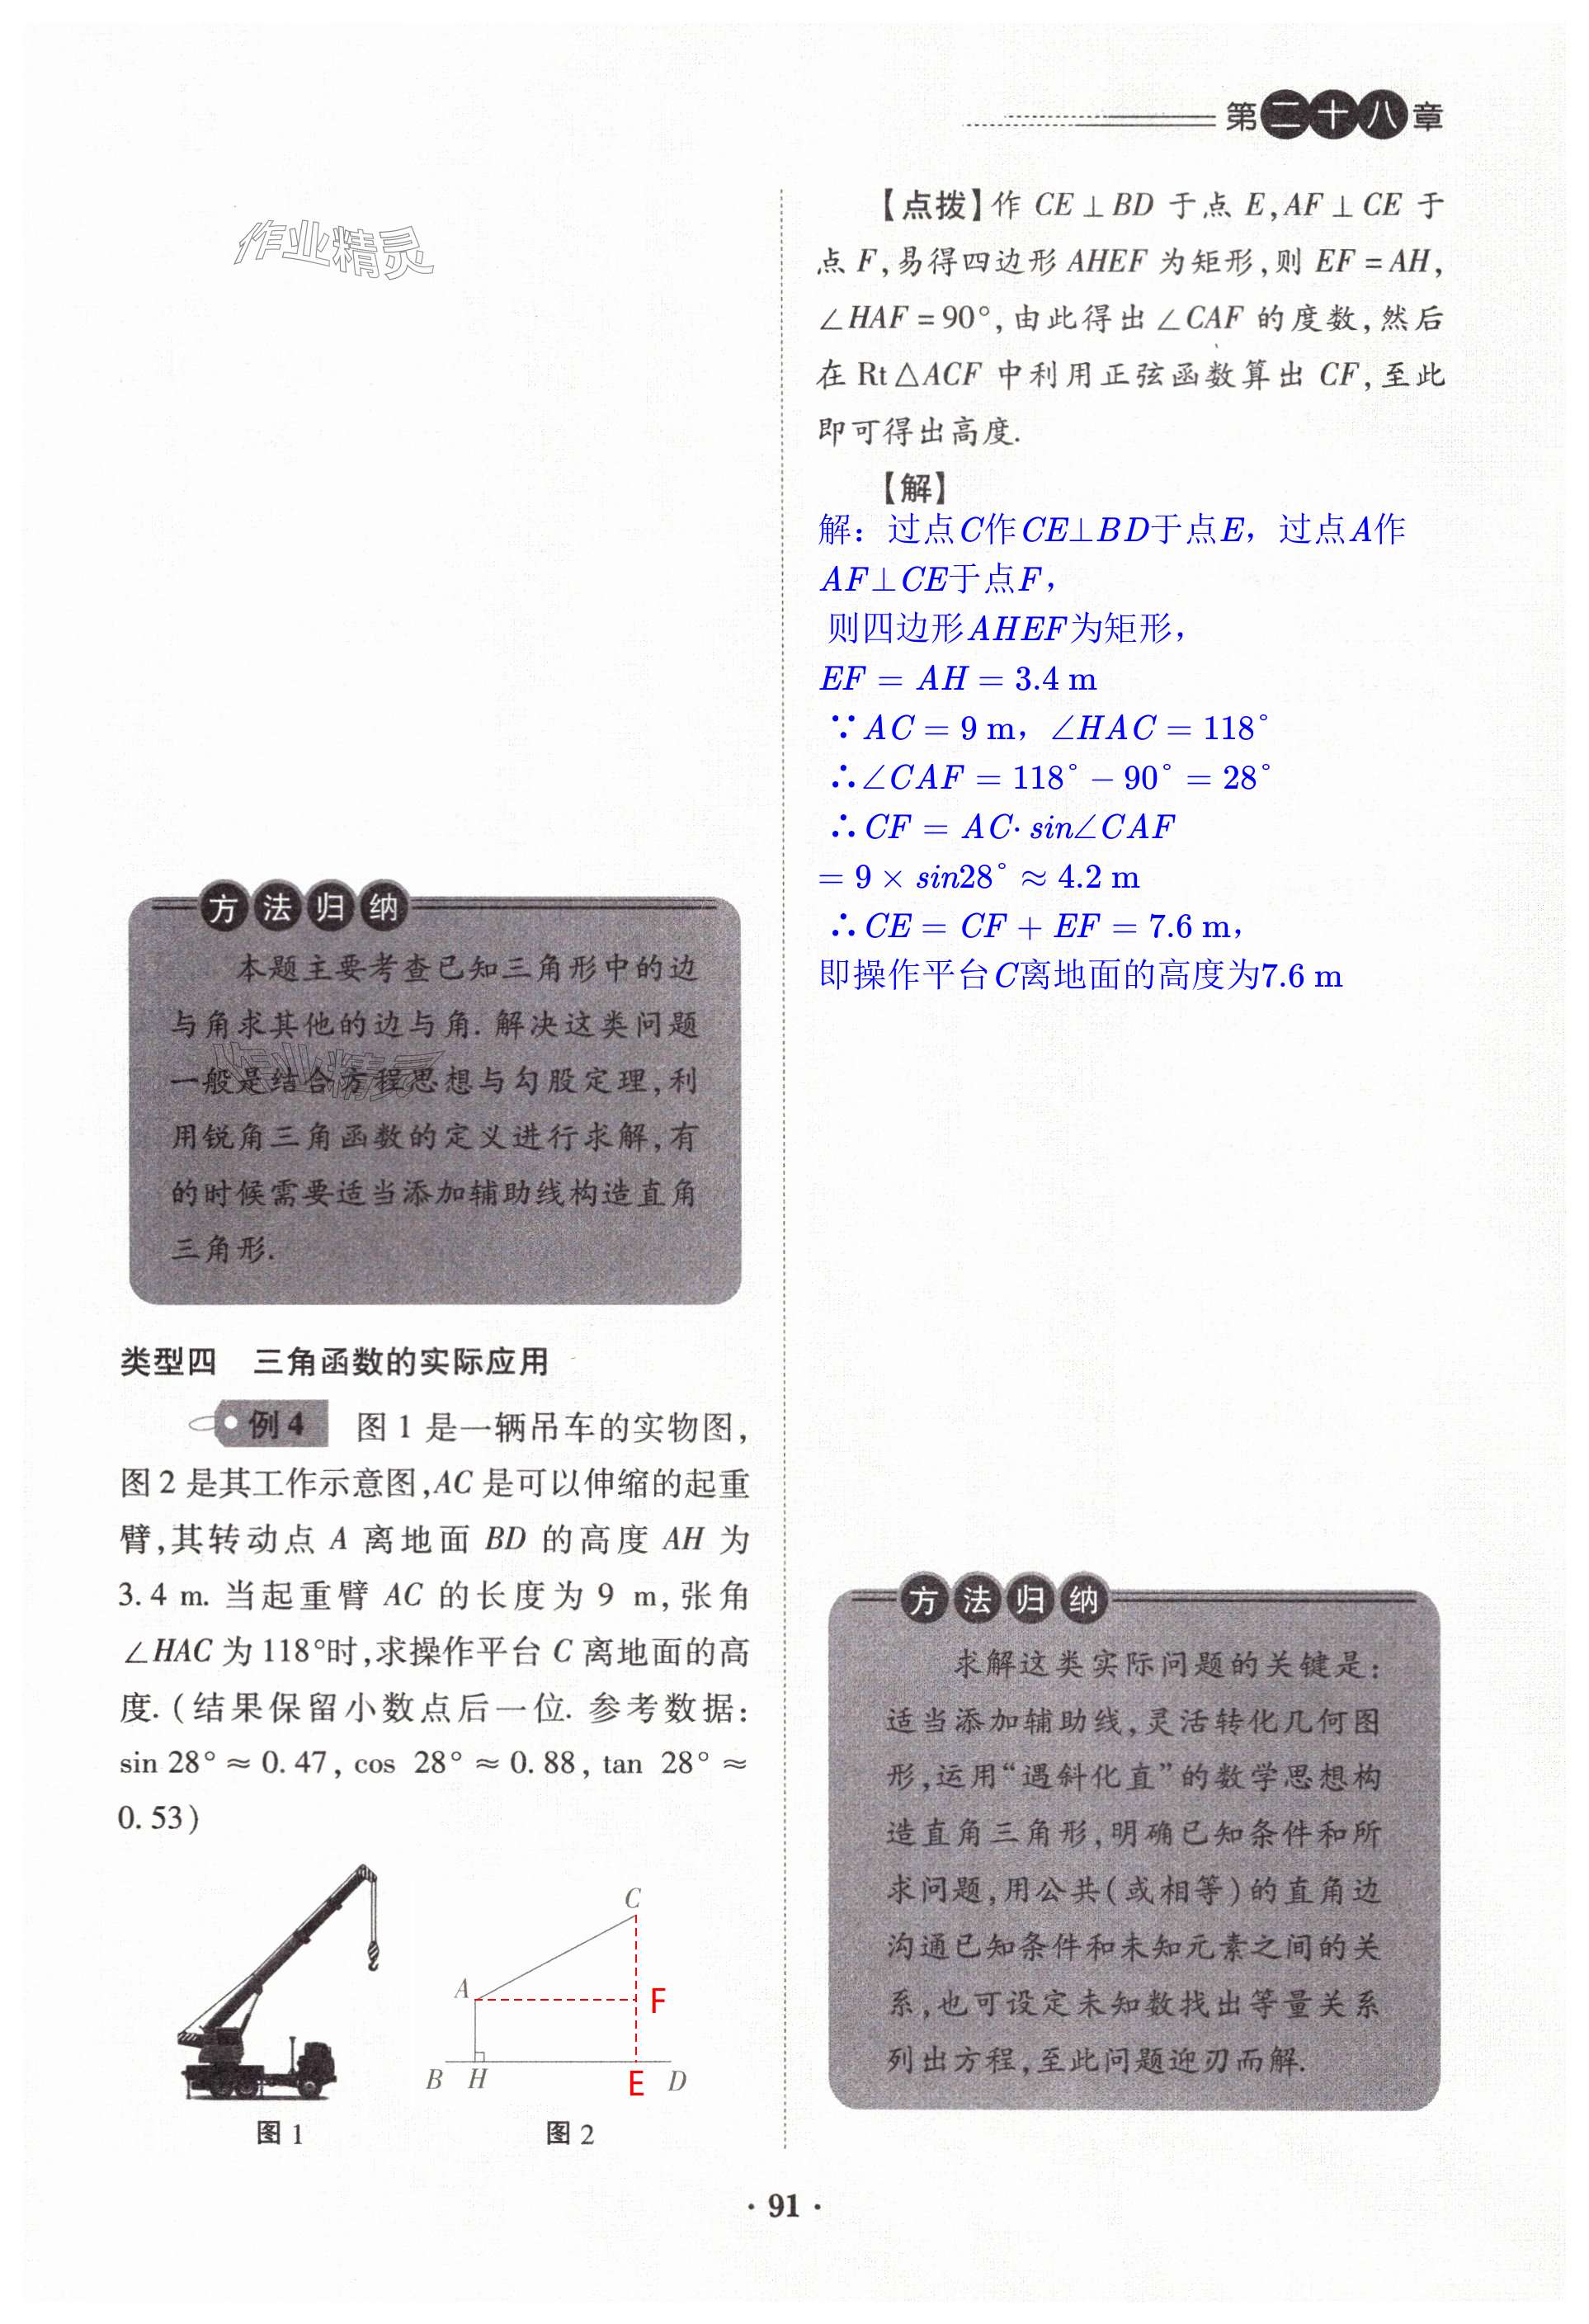 第二十八章
作业精灵
方法归纳
本题主要考查已知三角形中的边
与角求其他的边与角. 解决这类问题
一般是结合方程思想与勾股定理,利
用锐角三角函数的定义进行求解,有
的时候需要适当添加辅助线构造直角
三角形.
作业精灵
类型四 三角函数的实际应用
例4 图 1 是一辆吊车的实物图,
图 2 是其工作示意图,AC 是可以伸缩的起重
臂,其转动点 A 离地面 BD 的高度 AH 为
3.4 m. 当起重臂 AC 的长度为 9 m,张角
∠HAC 为 118°时,求操作平台 C 离地面的高
度. (结果保留小数点后一位. 参考数据:
sin 28°≈0.47, cos 28°≈0.88, tan 28°≈
0.53)
C
A
F
B H E D
图 1 图 2
【点拨】作 CE⊥BD 于点 E,AF⊥CE 于
点 F,易得四边形 AHEF 为矩形,则 EF=AH,
∠HAF=90°,由此得出∠CAF 的度数,然后
在 Rt△ACF 中利用正弦函数算出 CF,至此
即可得出高度.
【解】
解：过点C作CE⊥BD于点E，过点A作
AF⊥CE于点F，
则四边形AHEF为矩形，
EF = AH = 3.4 m
∵AC = 9 m，∠HAC = 118°
∴∠CAF = 118° − 90° = 28°
∴CF = AC· sin∠CAF
= 9 × sin28° ≈ 4.2 m
∴CE = CF + EF = 7.6 m，
即操作平台C离地面的高度为7.6 m
方法归纳
求解这类实际问题的关键是:
适当添加辅助线,灵活转化几何图
形,运用“遇斜化直”的数学思想构
造直角三角形,明确已知条件和所
求问题,用公共(或相等)的直角边
沟通已知条件和未知元素之间的关
系,也可设定未知数找出等量关系
列出方程,至此问题迎刃而解.
· 91 ·